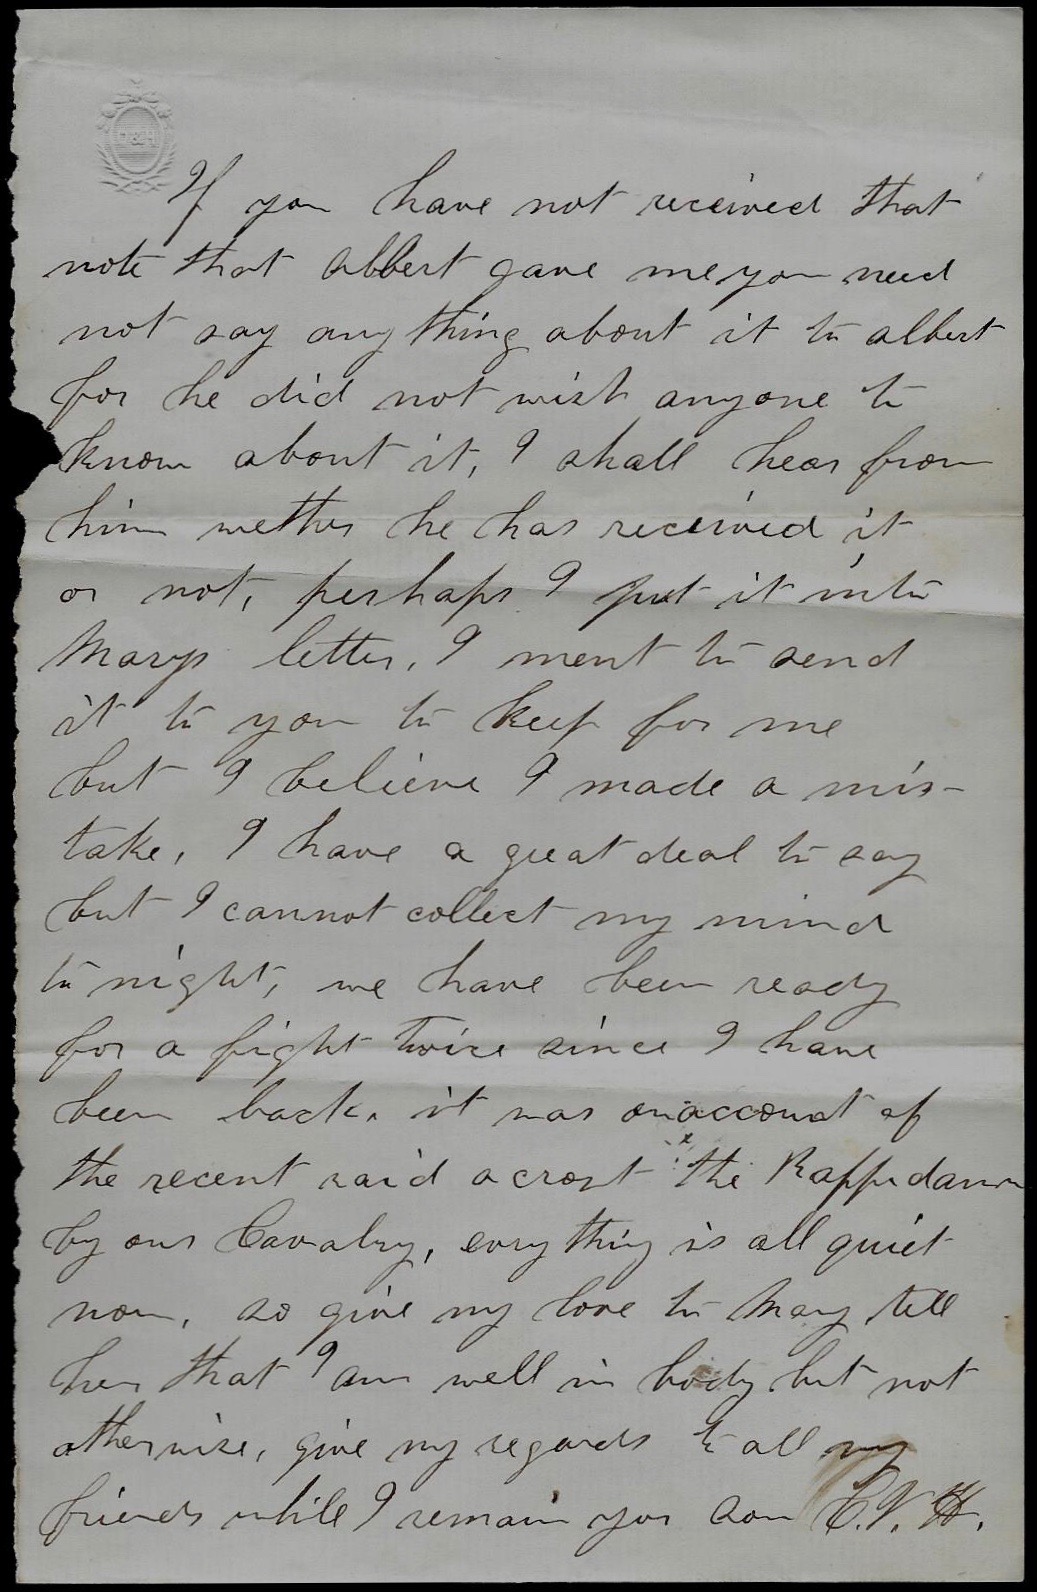 If you have not received that
note that Albert gave me you need
not say any thing about it to albert
for he did not wish anyone to
know about it, I shall hear from
him wether he has received it
or not, perhaps I put it into
Marys letter, I ment to send
it to you to keep for me
but I believe I made a mis-
take, I have a great deal to say
but I cannot collect my mind
to night, we have been ready
for a fight twice since I have
been back. it was on account of
the recent raid acrost the Rappidann
by our Cavalry, evrything is all quiet
now, so give my love to Mary tell
her that I am well in body but not
otherwise, give my regards to all my
friends while I remain your son C.V.H.